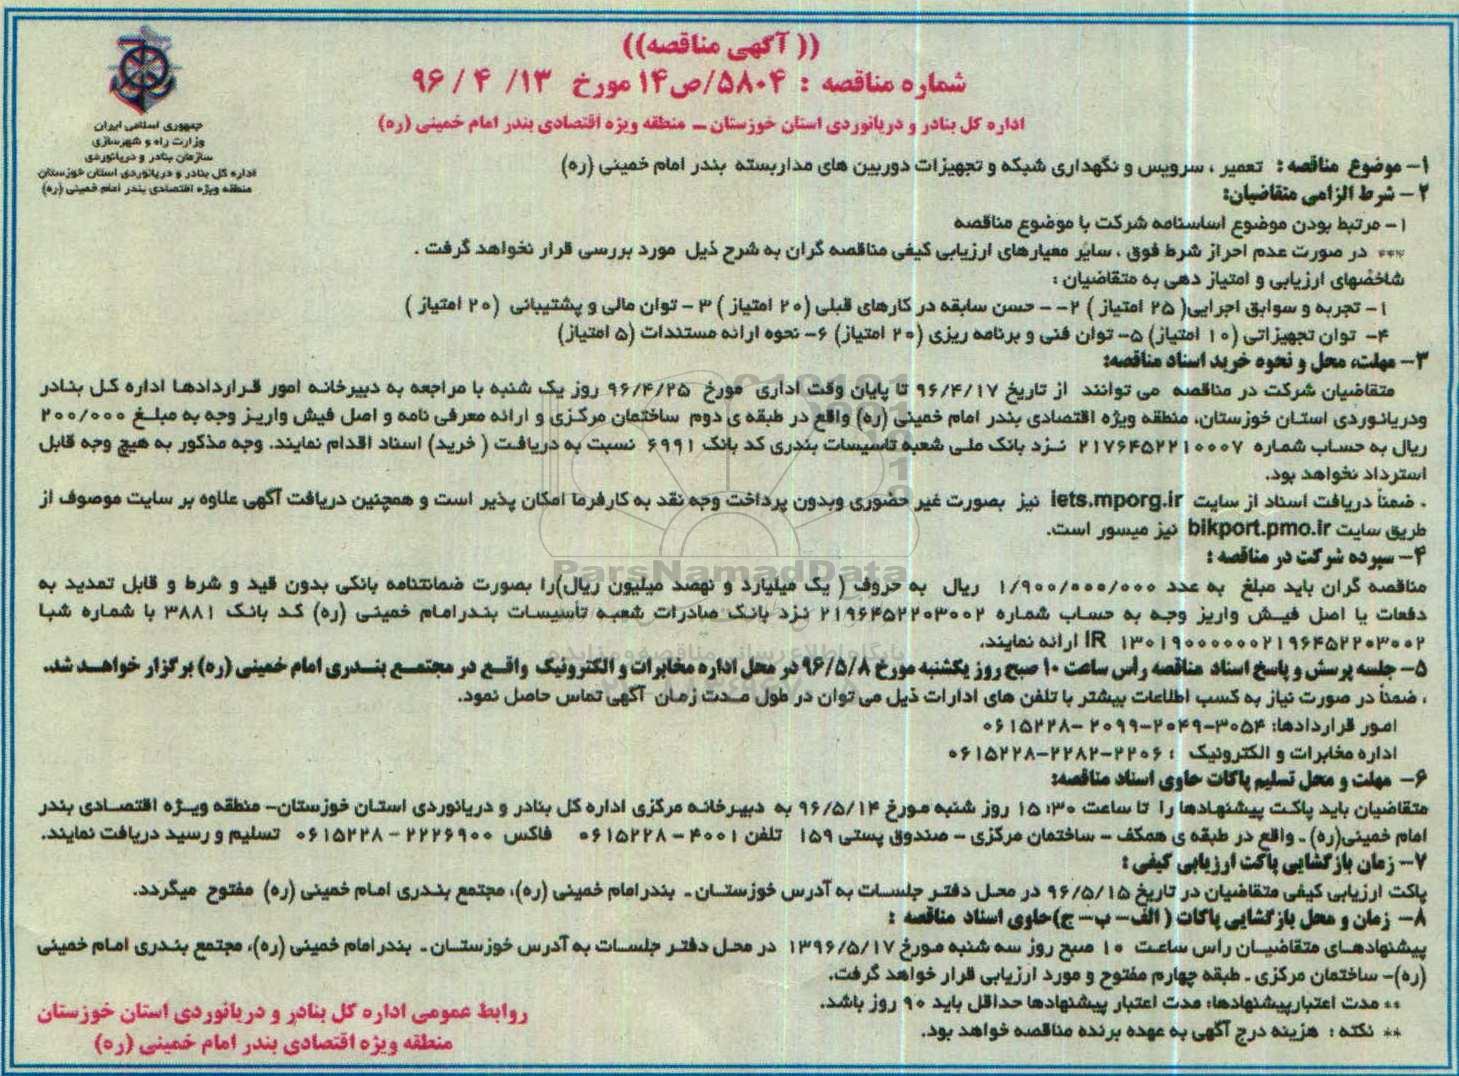 (( آگهی مناقصه))
شماره مناقصه : ۵۸۰۴/ص۱۴ مورخ ۱۳/ ۴ / ۹۶
اداره کل بنادر و دریانوردی استان خوزستان – منطقه ویژه اقتصادی بندر امام خمینی (ره)
جمهوری اسلامی ایران
وزارت راه و شهرسازی
سازمان بنادر و دریانوردی
اداره کل بنادر و دریانوردی استان خوزستان
منطقه ویژه اقتصادی بندر امام خمینی (ره)
۱- موضوع مناقصه : تعمیر ، سرویس و نگهداری شبکه و تجهیزات دوربین های مداربسته بندر امام خمینی (ره)
۲- شرط الزامی متقاضیان:
۱- مرتبط بودن موضوع اساسنامه شرکت با موضوع مناقصه
*** در صورت عدم احراز شرط فوق ، سایر معیارهای ارزیابی کیفی مناقصه گران به شرح ذیل مورد بررسی قرار نخواهد گرفت .
شاخصهای ارزیابی و امتیاز دهی به متقاضیان :
۱- تجربه و سوابق اجرایی( ۲۵ امتیاز ) ۲- - حسن سابقه در کارهای قبلی (۲۰ امتیاز ) ۳ - توان مالی و پشتیبانی (۲۰ امتیاز )
۴- توان تجهیزاتی (۱۰ امتیاز) ۵- توان فنی و برنامه ریزی (۲۰ امتیاز) ۶- نحوه ارائه مستندات (۵ امتیاز)
۳- مهلت، محل و نحوه خرید اسناد مناقصه:
متقاضیان شرکت در مناقصه می توانند از تاریخ ۹۶/۴/۱۷ تا پایان وقت اداری مورخ ۹۶/۴/۲۵ روز یک شنبه با مراجعه به دبیرخانه امور قراردادها اداره کل بنادر
ودریانوردی استان خوزستان، منطقه ویژه اقتصادی بندر امام خمینی (ره) واقع در طبقه ی دوم ساختمان مرکزی و ارائه معرفی نامه و اصل فیش واریز وجه به مبلغ ۲۰۰/۰۰۰
ریال به حساب شماره ۲۱۷۶۴۵۲۲۱۰۰۰۷ نزد بانک ملی شعبه تأسیسات بندری کد بانک ۶۹۹۱ نسبت به دریافت ( خرید) اسناد اقدام نمایند. وجه مذکور به هیچ وجه قابل
استرداد نخواهد بود.
. ضمناً دریافت اسناد از سایت iets.mporg.ir نیز بصورت غیر حضوری وبدون پرداخت وجه نقد به کارفرما امکان پذیر است و همچنین دریافت آگهی علاوه بر سایت موصوف از
طریق سایت bikport.pmo.ir نیز میسور است.
۴- سپرده شرکت در مناقصه :
مناقصه گران باید مبلغ به عدد ۱/۹۰۰/۰۰۰/۰۰۰ ریال به حروف ( یک میلیارد و نهصد میلیون ریال)را بصورت ضمانتنامه بانکی بدون قید و شرط و قابل تمدید به
دفعات یا اصل فیش واریز وجه به حساب شماره ۲۱۹۶۴۵۲۲۰۳۰۰۲ نزد بانک صادرات شعبه تأسیسات بندرامام خمینی (ره) کد بانک ۳۸۸۱ با شماره شبا
IR ۱۳۰۱۹۰۰۰۰۰۰۰۲۱۹۶۴۵۲۲۰۳۰۰۲ ارائه نمایند.
۵- جلسه پرسش و پاسخ اسناد مناقصه رأس ساعت ۱۰ صبح روز یکشنبه مورخ ۹۶/۵/۸ در محل اداره مخابرات و الکترونیک واقع در مجتمع بندری امام خمینی (ره) برگزار خواهد شد.
، ضمناً در صورت نیاز به کسب اطلاعات بیشتر با تلفن های ادارات ذیل می توان در طول مدت زمان آگهی تماس حاصل نمود.
امور قراردادها: ۳۰۵۴-۲۰۴۹-۲۰۹۹ -۰۶۱۵۲۲۸
اداره مخابرات و الکترونیک : ۲۲۰۶-۲۲۸۲-۰۶۱۵۲۲۸
۶- مهلت و محل تسلیم پاکات حاوی اسناد مناقصه:
متقاضیان باید پاکت پیشنهادها را تا ساعت ۱۵:۳۰ روز شنبه مورخ ۹۶/۵/۱۴ به دبیرخانه مرکزی اداره کل بنادر و دریانوردی استان خوزستان- منطقه ویژه اقتصادی بندر
امام خمینی(ره) ـ واقع در طبقه ی همکف - ساختمان مرکزی - صندوق پستی ۱۵۹ تلفن ۴۰۰۱ - ۰۶۱۵۲۲۸ فاکس ۲۲۲۶۹۰۰ - ۰۶۱۵۲۲۸ تسلیم و رسید دریافت نمایند.
۷- زمان بازگشایی پاکت ارزیابی کیفی :
پاکت ارزیابی کیفی متقاضیان در تاریخ ۹۶/۵/۱۵ در محل دفتر جلسات به آدرس خوزستان ـ بندرامام خمینی (ره)، مجتمع بندری امام خمینی (ره) مفتوح میگردد.
۸- زمان و محل بازگشایی پاکات ( الف- ب- ج)حاوی اسناد مناقصه :
پیشنهادهای متقاضیان راس ساعت ۱۰ صبح روز سه شنبه مورخ ۱۳۹۶/۵/۱۷ در محل دفتر جلسات به آدرس خوزستان ـ بندرامام خمینی (ره)، مجتمع بندری امام خمینی
(ره)- ساختمان مرکزی ـ طبقه چهارم مفتوح و مورد ارزیابی قرار خواهد گرفت.
** مدت اعتبارپیشنهادها: مدت اعتبار پیشنهادها حداقل باید ۹۰ روز باشد.
** نکته : هزینه درج آگهی به عهده برنده مناقصه خواهد بود.
روابط عمومی اداره کل بنادر و دریانوردی استان خوزستان
منطقه ویژه اقتصادی بندر امام خمینی (ره)
ParsNamadData